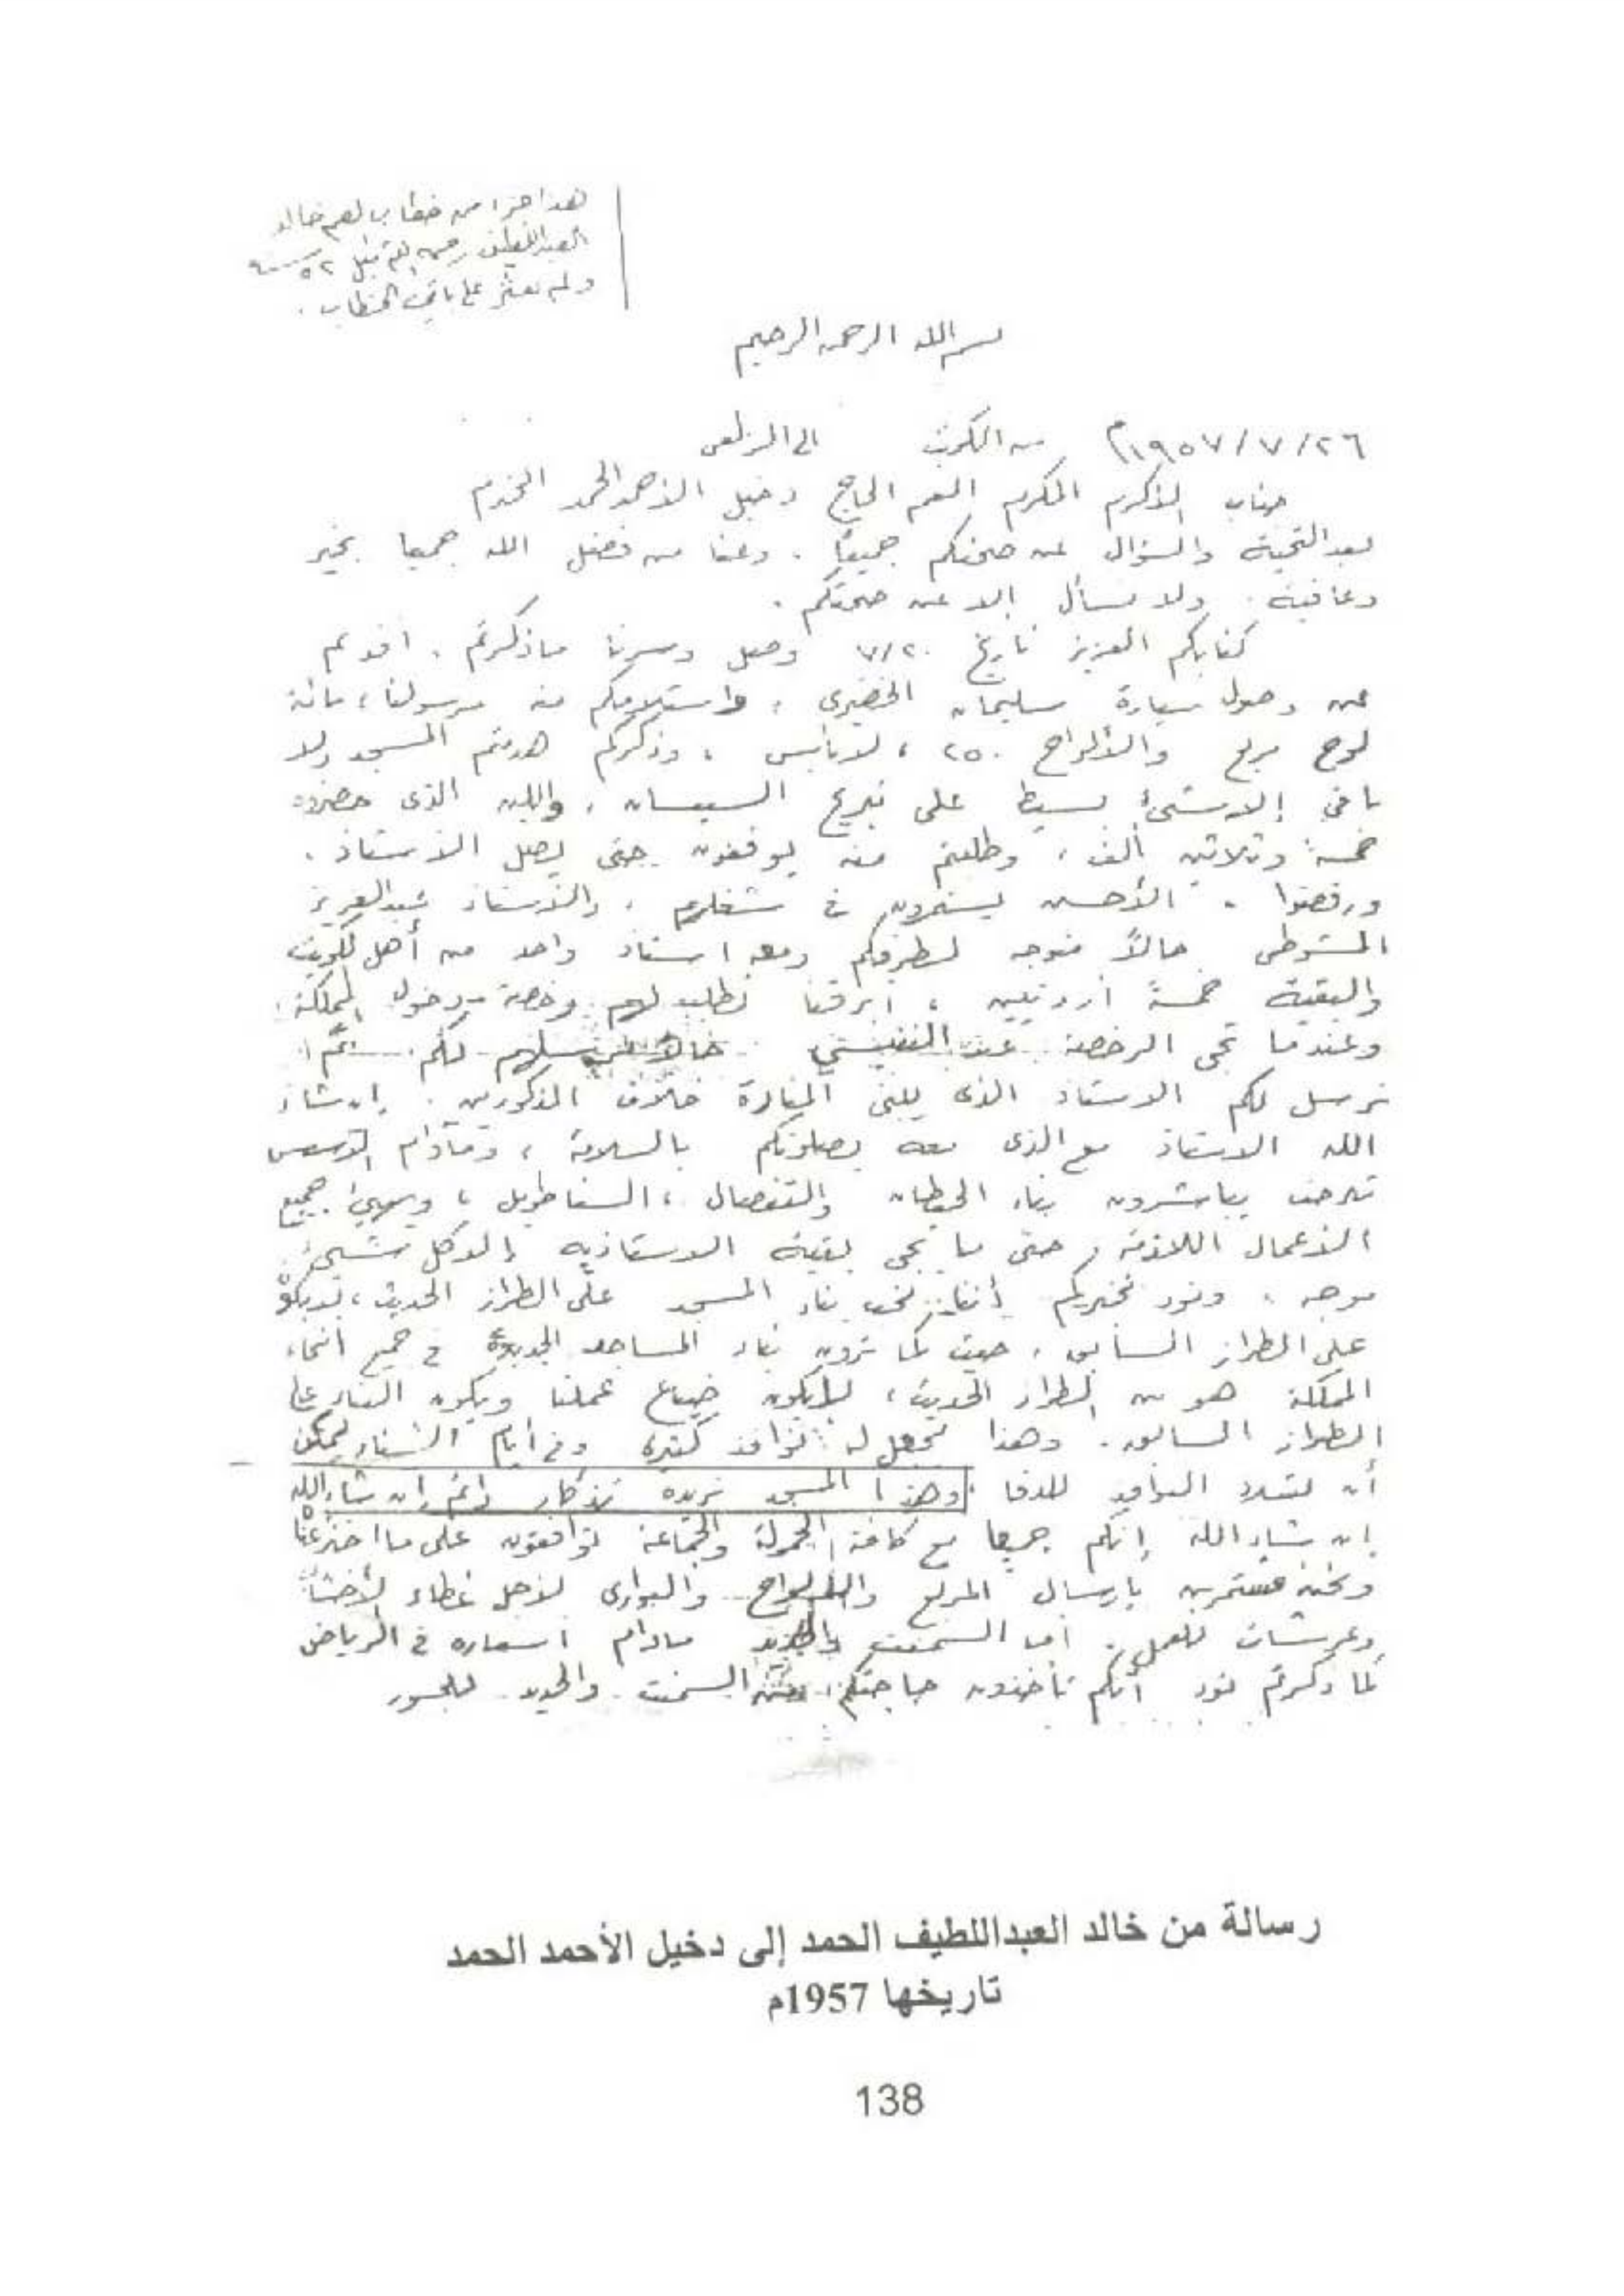 هذا جزء من خطاب لعم خالد
العبداللطيف قبل ٥٢ سنة
ولم نعثر على باقي الخطاب .
بسم الله الرحمن الرحيم
٢٦/٧/١٩٥٧م من الكويت الى الزلفى
جناب الأكرم المكرم العم الحاج دخيل الأحمد الحمد المحترم
بعد التحية والسؤال عن صحتكم جميعاً . وعنا من فضل الله جميعا بخير
وعافية . ولا نسأل إلا عن صحتكم .
كتابكم العزيز تاريخ ٧/٢٠ وصل وسرنا ما ذكرتم . افدتم
عن وصول سيارة سليمان الخضيري ، واستلامكم منه مرسولنا ، مائة
لوح مربع والألواح ٢٥٠ ، لا بأس ، وذكركم هدمتم المسجد ولا
باقي إلا شيئ بسيط على السيسان ، واللبن الذى حضروه
خمسة وثلاثين ألف ، وطلبتم منه يوقفون حتى يصل الاستاذ .
ورفضوا . الأحسن يستمرون فى شغلهم ، والأستاذ عبدالعزيز
حالاً متوجه لطرفكم ومعه استاذ واحد من أهل الكويت
والبقية خمسة ، ابرقنا نطلب لهم رخصة دخول المملكة .
وعندما تجى الرخصة لكم
نرسل لكم الاستاذ الذى يبنى المنارة خلاف المذكورين . إن شاء
الله الاستاذ مع الذى معه يصلونكم بالسلامة ، ومادام
يباشرون بناء الحيطان ، ويهيئ جميع
الأعمال اللازمة ، حتى ما تجى بقية الاستاذيه إلا وكل شيئ
موجه . ونود نخبركم أننا نحب بناء المسجد على الطراز الحديث ،
على الطراز السابق ، حيث كما ترون بناء المساجد الجديدة فى جميع انحاء
المملكة هو من الطراز الحديث ، ضياع عملنا ويكون البناء على
الطراز السابق . وهذا نجعل له نوافذ كثيرة وفى أيام الشتاء يمكن
أن تسدد النوافذ للدفا . وهذا المسجد نريده تذكار دائم إن شاء الله
إن شاء الله إنكم جميعا مع كافة الحمولة والجماعة توافقون على ما
ونحن مستمرين بإرسال المربع والألواح والبوارى لأجل غطاء
للعمل . اما السمنت والحديد مادام اسعاره فى الرياض
كما ذكرتم نود أنكم تأخذون حاجتكم من السمنت والحديد للجسور
رسالة من خالد العبداللطيف الحمد إلى دخيل الأحمد الحمد
تاريخها 1957م
138